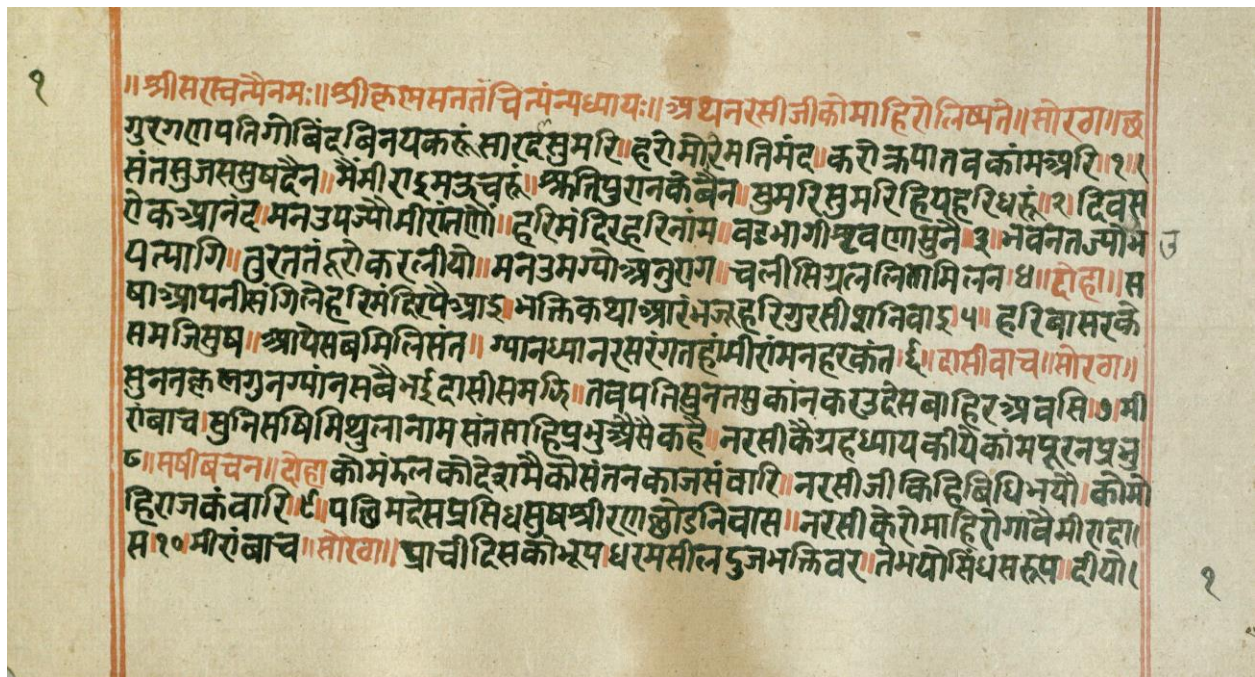 १
॥श्रीसरस्वत्यैनमः॥श्रीकृष्णसततंचित्यंन्यध्यायः॥अथनरसीजीकोमाहिरोलिष्यते॥सोरठा॥छ
गुरगणपतिगोबिंदबिनयकरूंसारदसुमरि॥हरोमोरमतिमंद॥करोक्रपातवकांमअरि॥१॥
संतसुजससुषदैन॥मैंमीराइमउचरूं॥श्रुतिपुरानकेबैन॥सुमरिसुमरिहियहरिधरूं॥२।दिवस
येकआनंद॥मनउपज्यौमीरांतणे॥हरिमंदिरहरिनांम॥वडभागीश्रवणासुनै॥३॥भवनतज्योभ
यत्यागि॥तुरततंदूरोकरलीयो॥मनउमग्योअनुराग॥चलीसिग्रललितामिलन॥४॥दोहा॥स
षाआपनीसंगिलेहरिमंदिरपैआइ॥भक्तिकथाआरंभजहरिगुरसीशनिवाइ।५॥हरिबासरके
समजिसुष॥आयेसबमिलिसंत॥ग्यानध्यानरसरंगतहांमीरांमनहरकंत।६॥दासीवाच॥सोरठा॥
सुनतकृष्णगुनग्यांनसवैभईदासीसमझि॥तवपतिसुनतसुकांनकरउदेसबाहिरअवसि।७।मी
रांबाच।सुनिसषिमिथुलानामसंतसाहिप्रभुअैसैकहै॥नरसीकैग्रहध्यायकीयेकांमपूरनप्रभु
८॥सषीबचन॥दोहाकोमंडलकौदेशमैकौसंतनकाजसंवारि॥नरसीजीकिहिबिधिभयौ।कौमो
हिराजकंवारि॥९॥पछिमदेसप्रसिधसुषश्रीरणछोडनिवास॥नरसीकेरोमाहिरोगावैमीरादा।
स।१०।मीरांबाच॥सोरठा॥प्राचीदिसकौभूप।धरमसीलदुजभक्तिवर॥तेभयोसिंधसरूप॥दीयो।
१